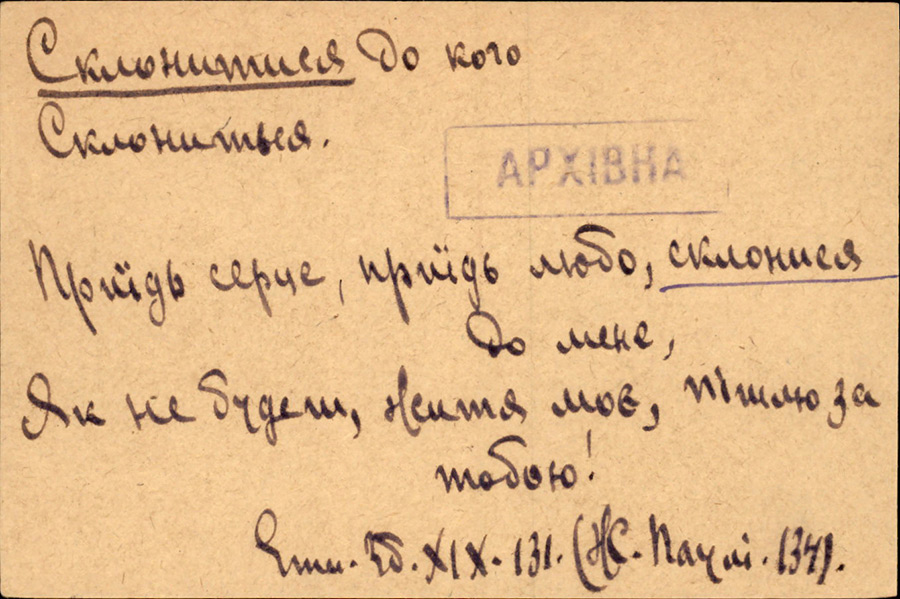 Склонитися до кого
Склониться.
АРХІВНА
Приїдь серце, приїдь любо, склонися
до мене,
Як не будеш, життя моє, пішлю за
тобою!
Етн. Зб. XIX. 131. (Ж. Паулі. 134).